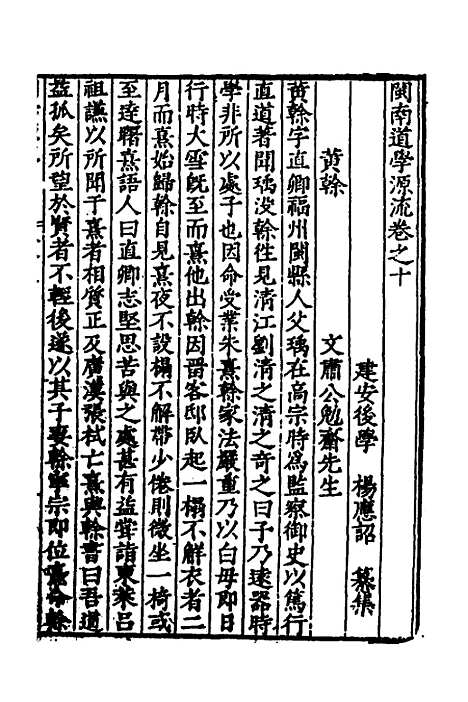 閩南道學源流卷之十
建安後學 楊應詔 纂集
黃榦 文肅公勉齋先生
黃榦字直卿福州閩縣人父瑀在高宗時爲監察御史以篤行
直道著聞瑀沒榦徃見清江劉清之清之奇之曰子乃遠器時
學非所以處子也因命受業朱熹榦家法嚴重乃以白母即日
行時大雪旣至而熹他出榦因畱客邸臥起一榻不解衣者二
月而熹始歸榦自見熹夜不設榻不解帶少倦則微坐一椅或
至逹曙熹語人曰直卿志堅思苦與之處甚有益嘗詣東萊呂
祖謙以所聞于熹者相質正及廣漢張栻亡熹與榦書曰吾道
益孤矣所望於賢者不輕後遂以其子妻榦寧宗即位熹命榦